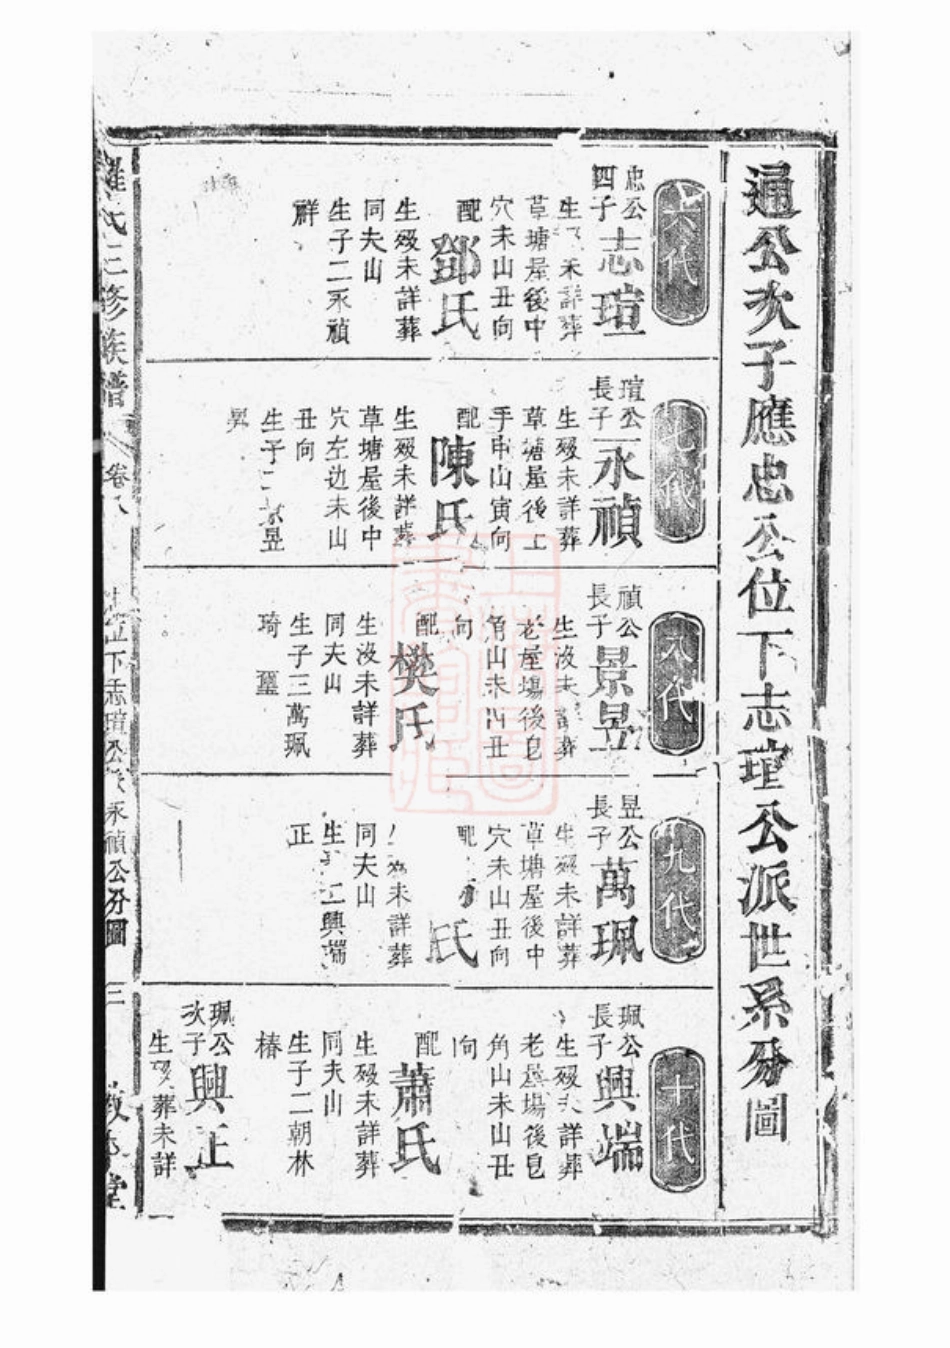 通公次子應忠公位下志瑄公派世系分圖
六代
忠公
四子
志瑄
生歿未詳葬
草塘屋後中
穴未山丑向
配
鄧氏
生歿未詳葬
同夫山
生子二永禎
祥
七代
瑄公
長子
永禎
生歿未詳葬
草塘屋後上
手申山寅向
配
陳氏
生歿未詳葬
草塘屋後中
穴左边未山
丑向
生子二景昱
昇
八代
禎公
長子
景昱
生沒未詳葬
老屋塲後皂
角山未山丑
向
配
樊氏
生沒未詳葬
同夫山
生子三萬珮
琦 璽
九代
昱公
長子
萬珮
生歿未詳葬
草塘屋後中
穴未山丑向
配
氏
生歿未詳葬
同夫山
生子二興端
正
十代
珮公
長子
興端
生歿未詳葬
老屋塲後皂
角山未山丑
向
配
蕭氏
生歿未詳葬
同夫山
生子二朝林
椿
珮公
次子
興正
生歿葬未詳
羅氏三修族譜
卷八
忠位下志瑄公永禎公分圖
三
敦本堂